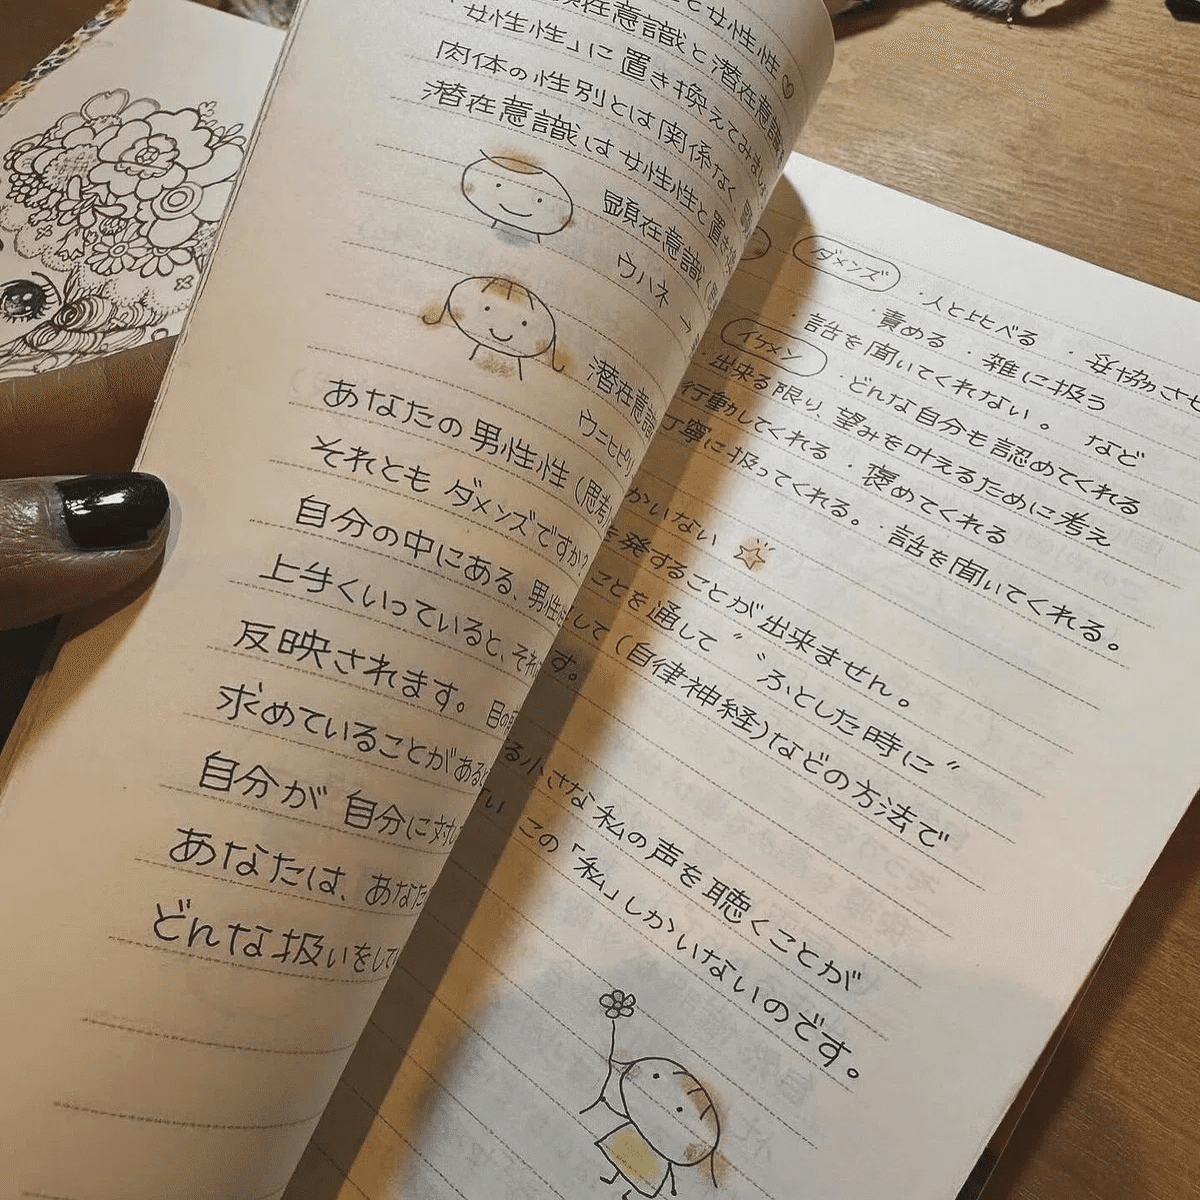 と女性性♡
顕在意識と潜在意識
女性性」に置き換えてみま
肉体の性別とは関係なく
潜在意識は女性性と置き換
顕在意識
ウハネ →
潜在意識
ウニヒピリ
あなたの男性性(思考
それともダメンズですか?
自分の中にある、男性性
上手くいっていると、それ
反映されます。目の
求めていることがある
自分が自分に対し
あなたは、あなた
どんな扱いをして
ダメンズ ・人と比べる ・妥協させ
・責める ・雑に扱う
・話を聞いてくれない。 など
イケメン ・どんな自分も認めてくれる
・出来る限り、望みを叶えるために考え
行動してくれる ・褒めてくれる
丁寧に扱ってくれる。・話を聞いてくれる。
かいない
を発することが出来ません。
ことを通して〝ふとした時に〟
して(自律神経)などの方法で
す。
る小さな私の声を聴くことが
この「私」しかいないのです。